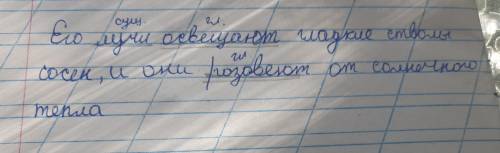 сущ. гл.
Его лучи освещают гладкие стволы
гл
сосен, и они розовеют от солнечного
тепла